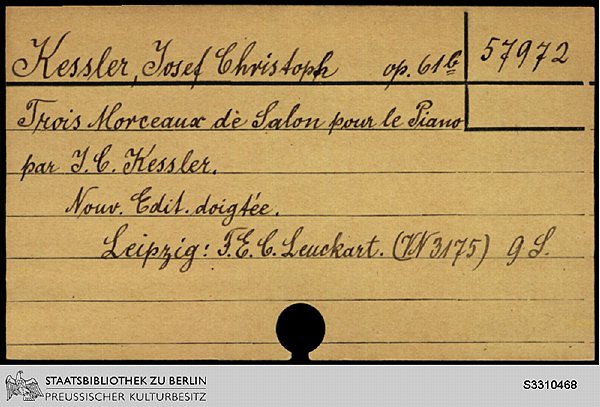 Kessler, Josef Christoph op. 61b 57972
Trois Morceaux dè Salon pour le Piano
par J. C. Kessler.
Nouv. Edit. doigtée.
Leipzig: F. E. C. Leuckart. (VN 3175) 9 S.
STAATSBIBLIOTHEK ZU BERLIN
PREUSSISCHER KULTURBESITZ
S3310468